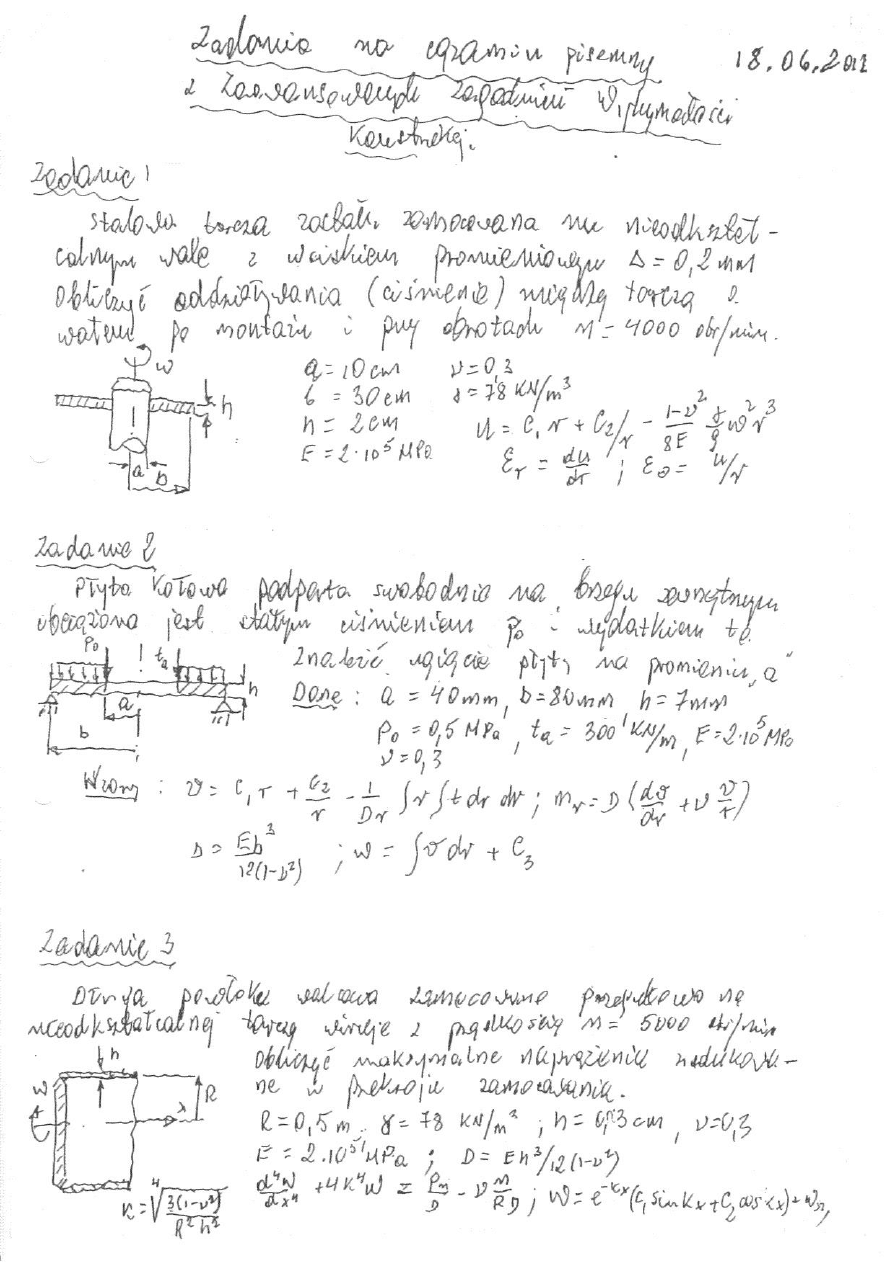 Zadania na egzamin pisemny 18.06.2012
z Zaawansowanych zagadnień Wytrzymałości
Konstrukcji.
Zadanie 1
Stalowa tarcza została zamocowana na nieodkształ-
calnym wale z wciskiem promieniowym Δ = 0,2 mm
Obliczyć oddziaływania (ciśnienie) między tarczą a
wałem po montażu i przy obrotach n = 4000 obr/min.
ω
h
a
b
a = 10 cm ν = 0,3
b = 30 cm γ = 78 kN/m³
h = 2 cm u = C₁r + C₂/r - (1-ν²)/(8E) γ/g ω² r³
E = 2·10⁵ MPa εr = du/dr ; εθ = u/r
Zadanie 2
Płyta kołowa podparta swobodnie na brzegu zewnętrznym
obciążona jest stałym ciśnieniem p₀ i wydatkiem ta.
p₀ ta
h
a
b
Znaleźć ugięcie płyty na promieniu „a"
Dane : a = 40mm, b = 80mm, h = 7mm
p₀ = 0,5 MPa, ta = 300 kN/m, E = 2·10⁵ MPa
ν = 0,3
Wzory : ϑ = C₁r + C₂/r - 1/(Dr) ∫r∫t dr dr ; mr = D(dϑ/dr + ν ϑ/r)
D = Eh³/12(1-ν²) ; w = ∫ϑdr + C₃
Zadanie 3
Długa powłoka walcowa zamocowana przegubowo na
nieodkształcalnej tarczy wiruje z prędkością n = 5000 obr/min
Obliczyć maksymalne naprężenia zredukowa-
ne w przekroju zamocowania.
h
ω
R
x
R = 0,5 m γ = 78 kN/m³ ; h = 0,3 cm, ν = 0,3
E = 2·10⁵ MPa ; D = Eh³/12(1-ν²)
k = ⁴√(3(1-ν²)/R²h²) d⁴w/dx⁴ + 4k⁴w = pn/D - ν n/RD ; w = e^-kx (C₁ sin kx + C₂ cos kx) + wsz,